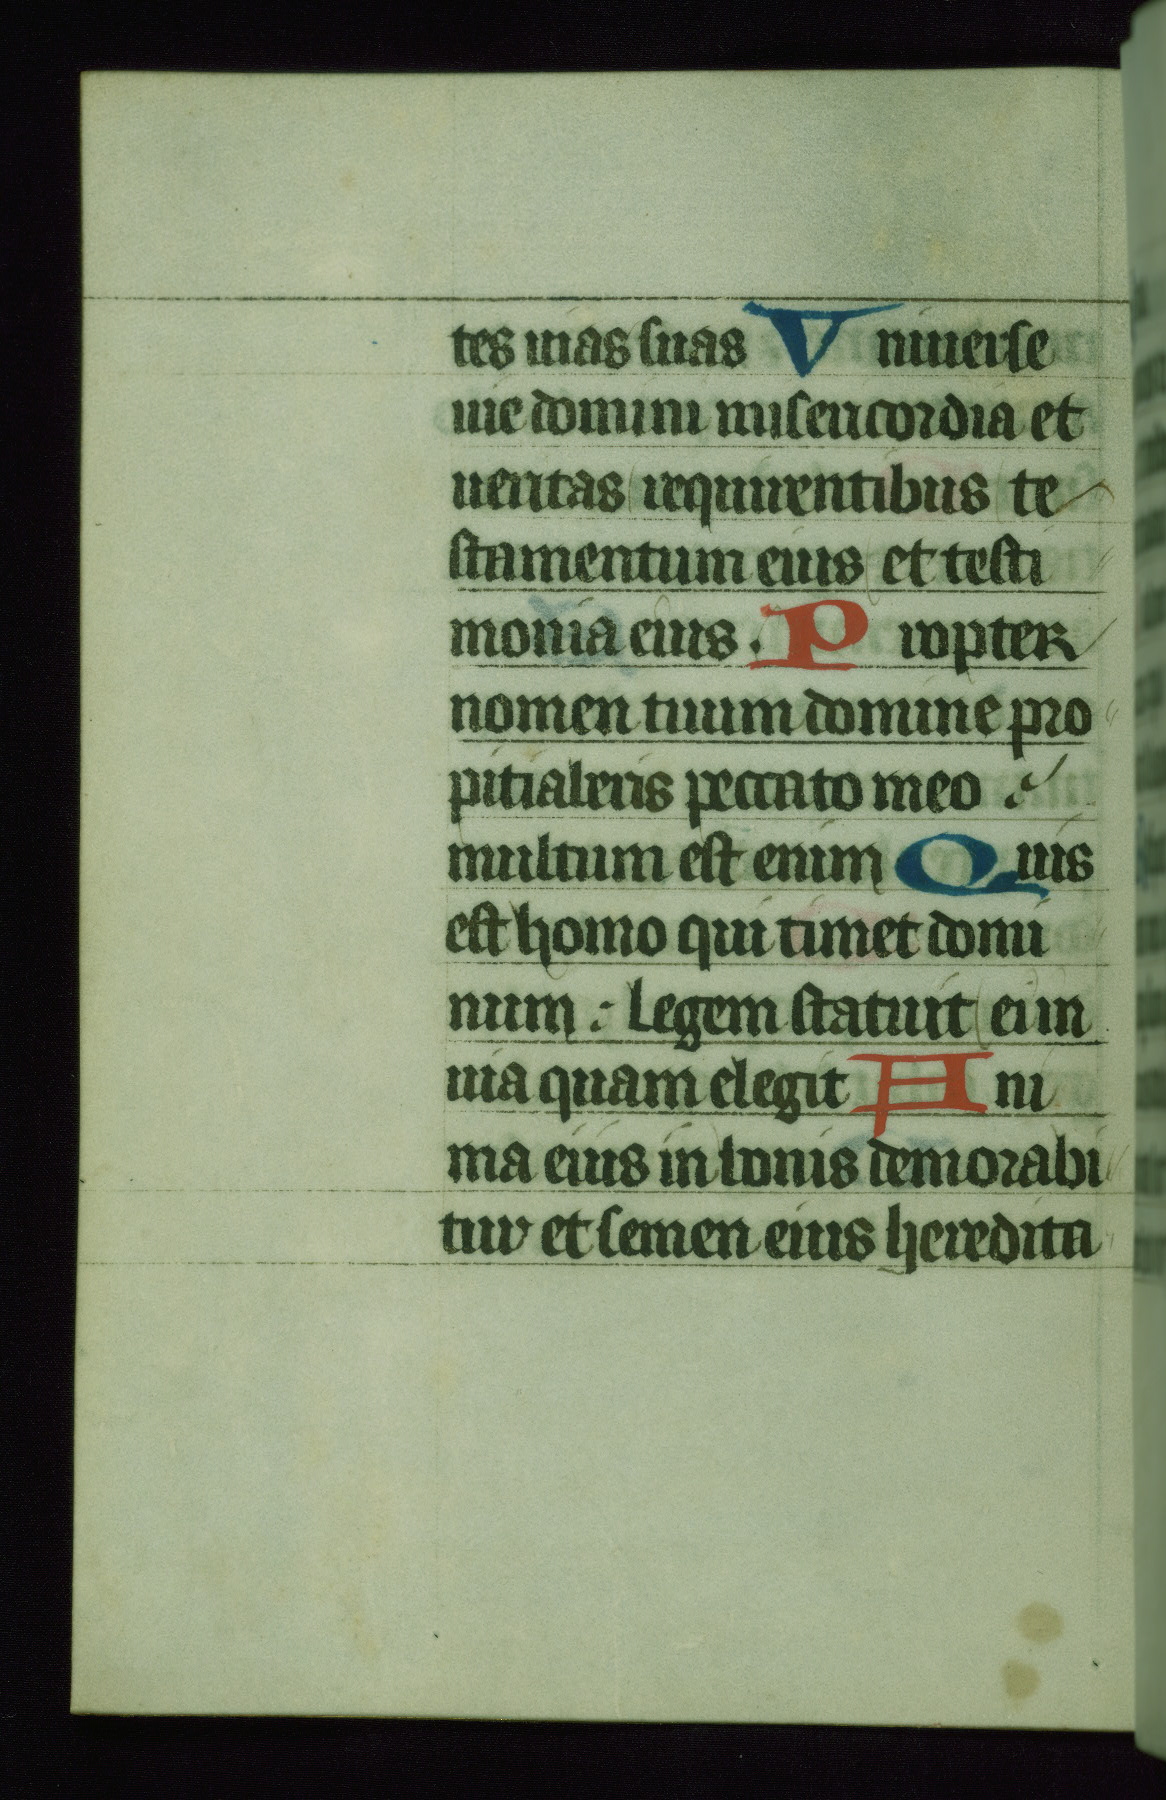 tes uias suas Uniuerse
uie domini misericordia et
ueritas requirentibus te
stamentum eius et testi
monia eius. Propter
nomen tuum domine pro
pitiaberis peccato meo :
multum est enim Quis
est homo qui timet domi
num : legem statuit ei in
uia quam elegit Ani
ma eius in bonis demorabi
tur et semen eius heredita